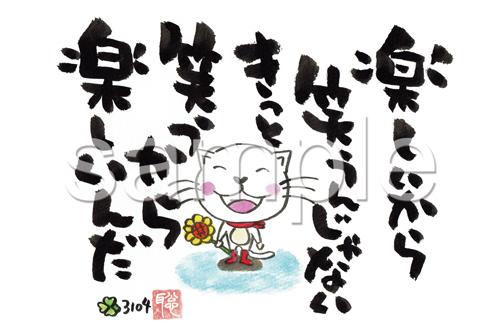 楽しいから
笑うんじゃない
きっと
笑うから
楽しいんだ
3104
聡
sample